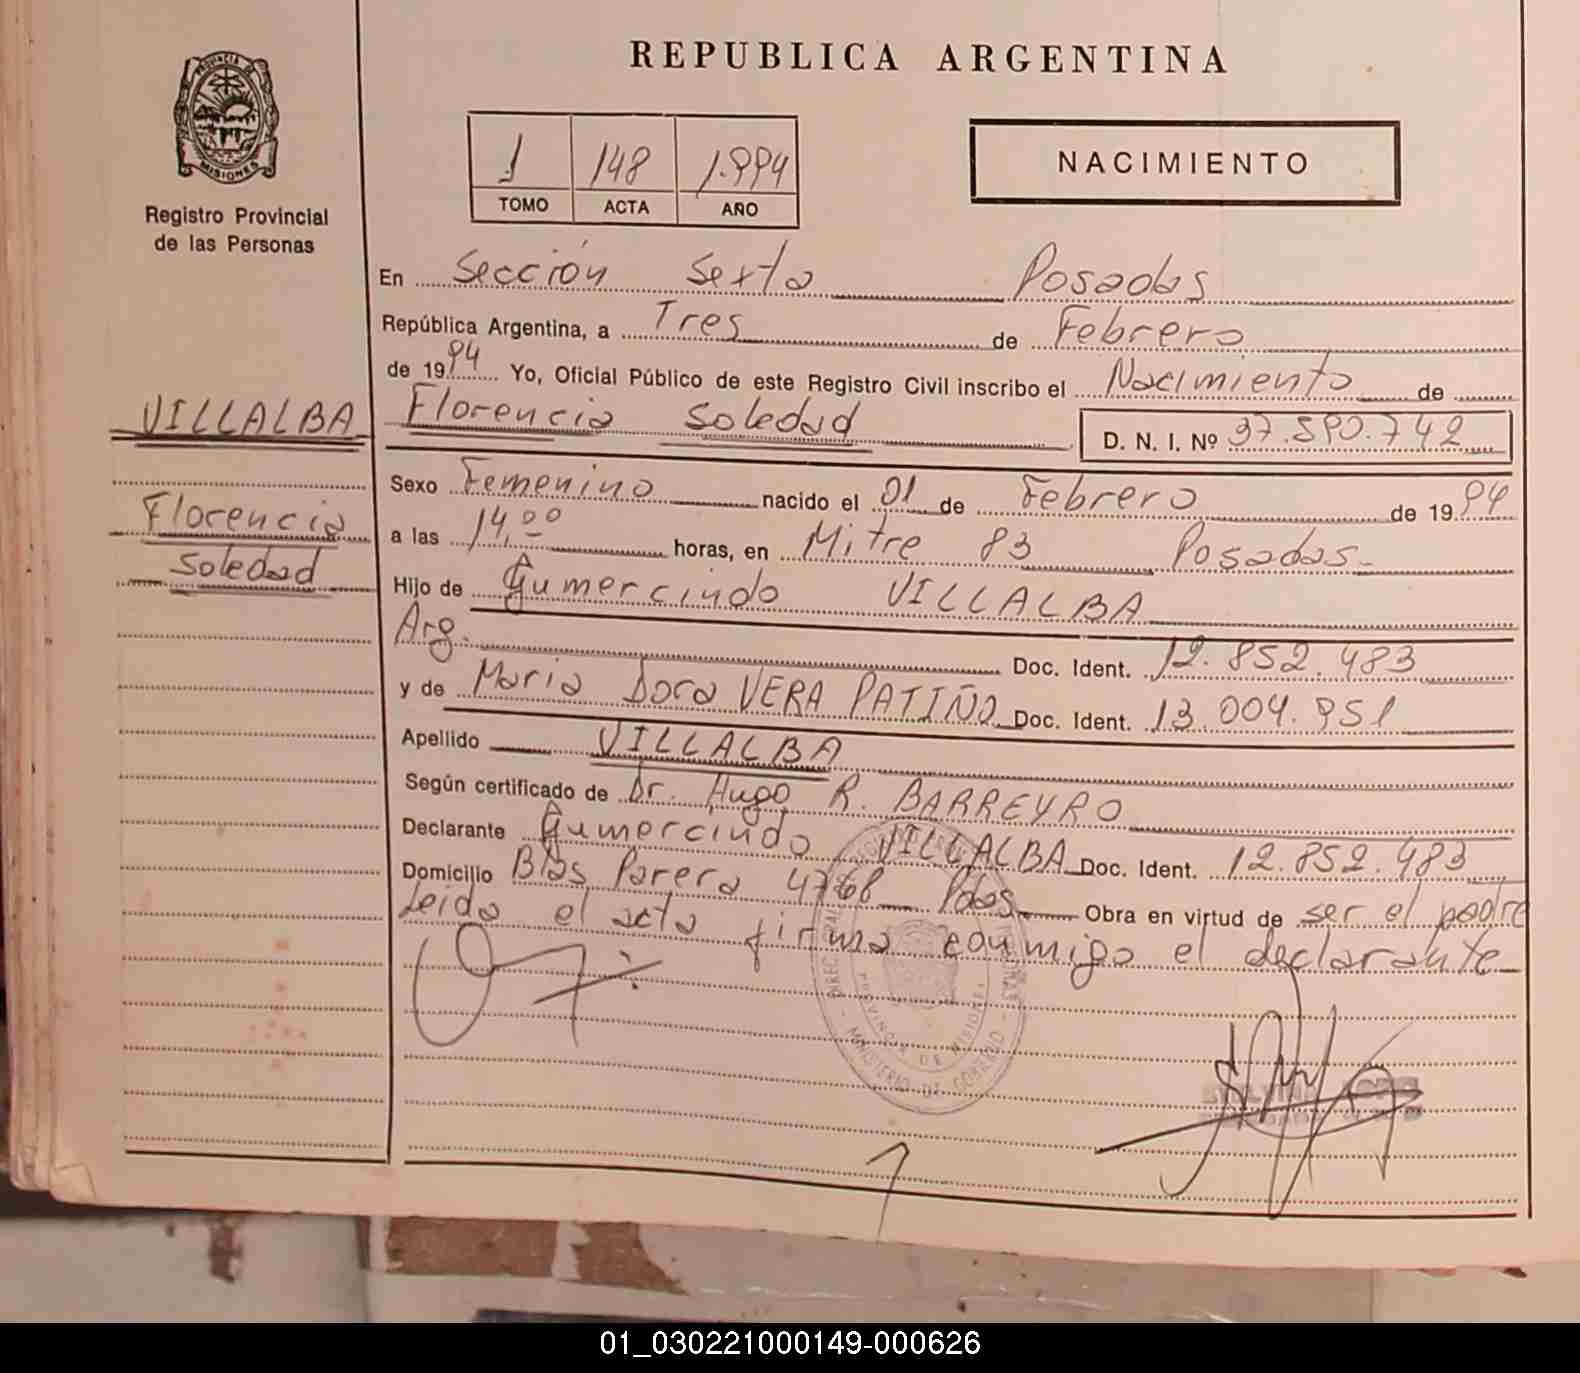 REPUBLICA ARGENTINA
PROVINCIA DE MISIONES
Registro Provincial
de las Personas
1 148 1.994
TOMO ACTA AÑO
NACIMIENTO
En Sección Sexta Posadas
República Argentina, a Tres de Febrero
de 1994 Yo, Oficial Público de este Registro Civil inscribo el Nacimiento de
VILLALBA
Florencia Soledad D. N. I. Nº 37.590.742
Florencia
Soledad
Sexo Femenino nacido el 01 de Febrero de 1994
a las 14,00 horas, en Mitre 83 Posadas-
Hijo de Gumercindo VILLALBA
Arg. Doc. Ident. 12.852.483
y de Maria Dora VERA PATIÑO Doc. Ident. 13.004.951
Apellido VILLALBA
Según certificado de Dr. Hugo R. BARREYRO
Declarante Gumercindo VILLALBA Doc. Ident. 12.852.483
Domicilio Blas Parera 4768 Pdas Obra en virtud de ser el padre
Leida el acta firma conmigo el declarante
PROVINCIA DE MISIONES
MINISTERIO DE GOBIERNO
01_030221000149-000626